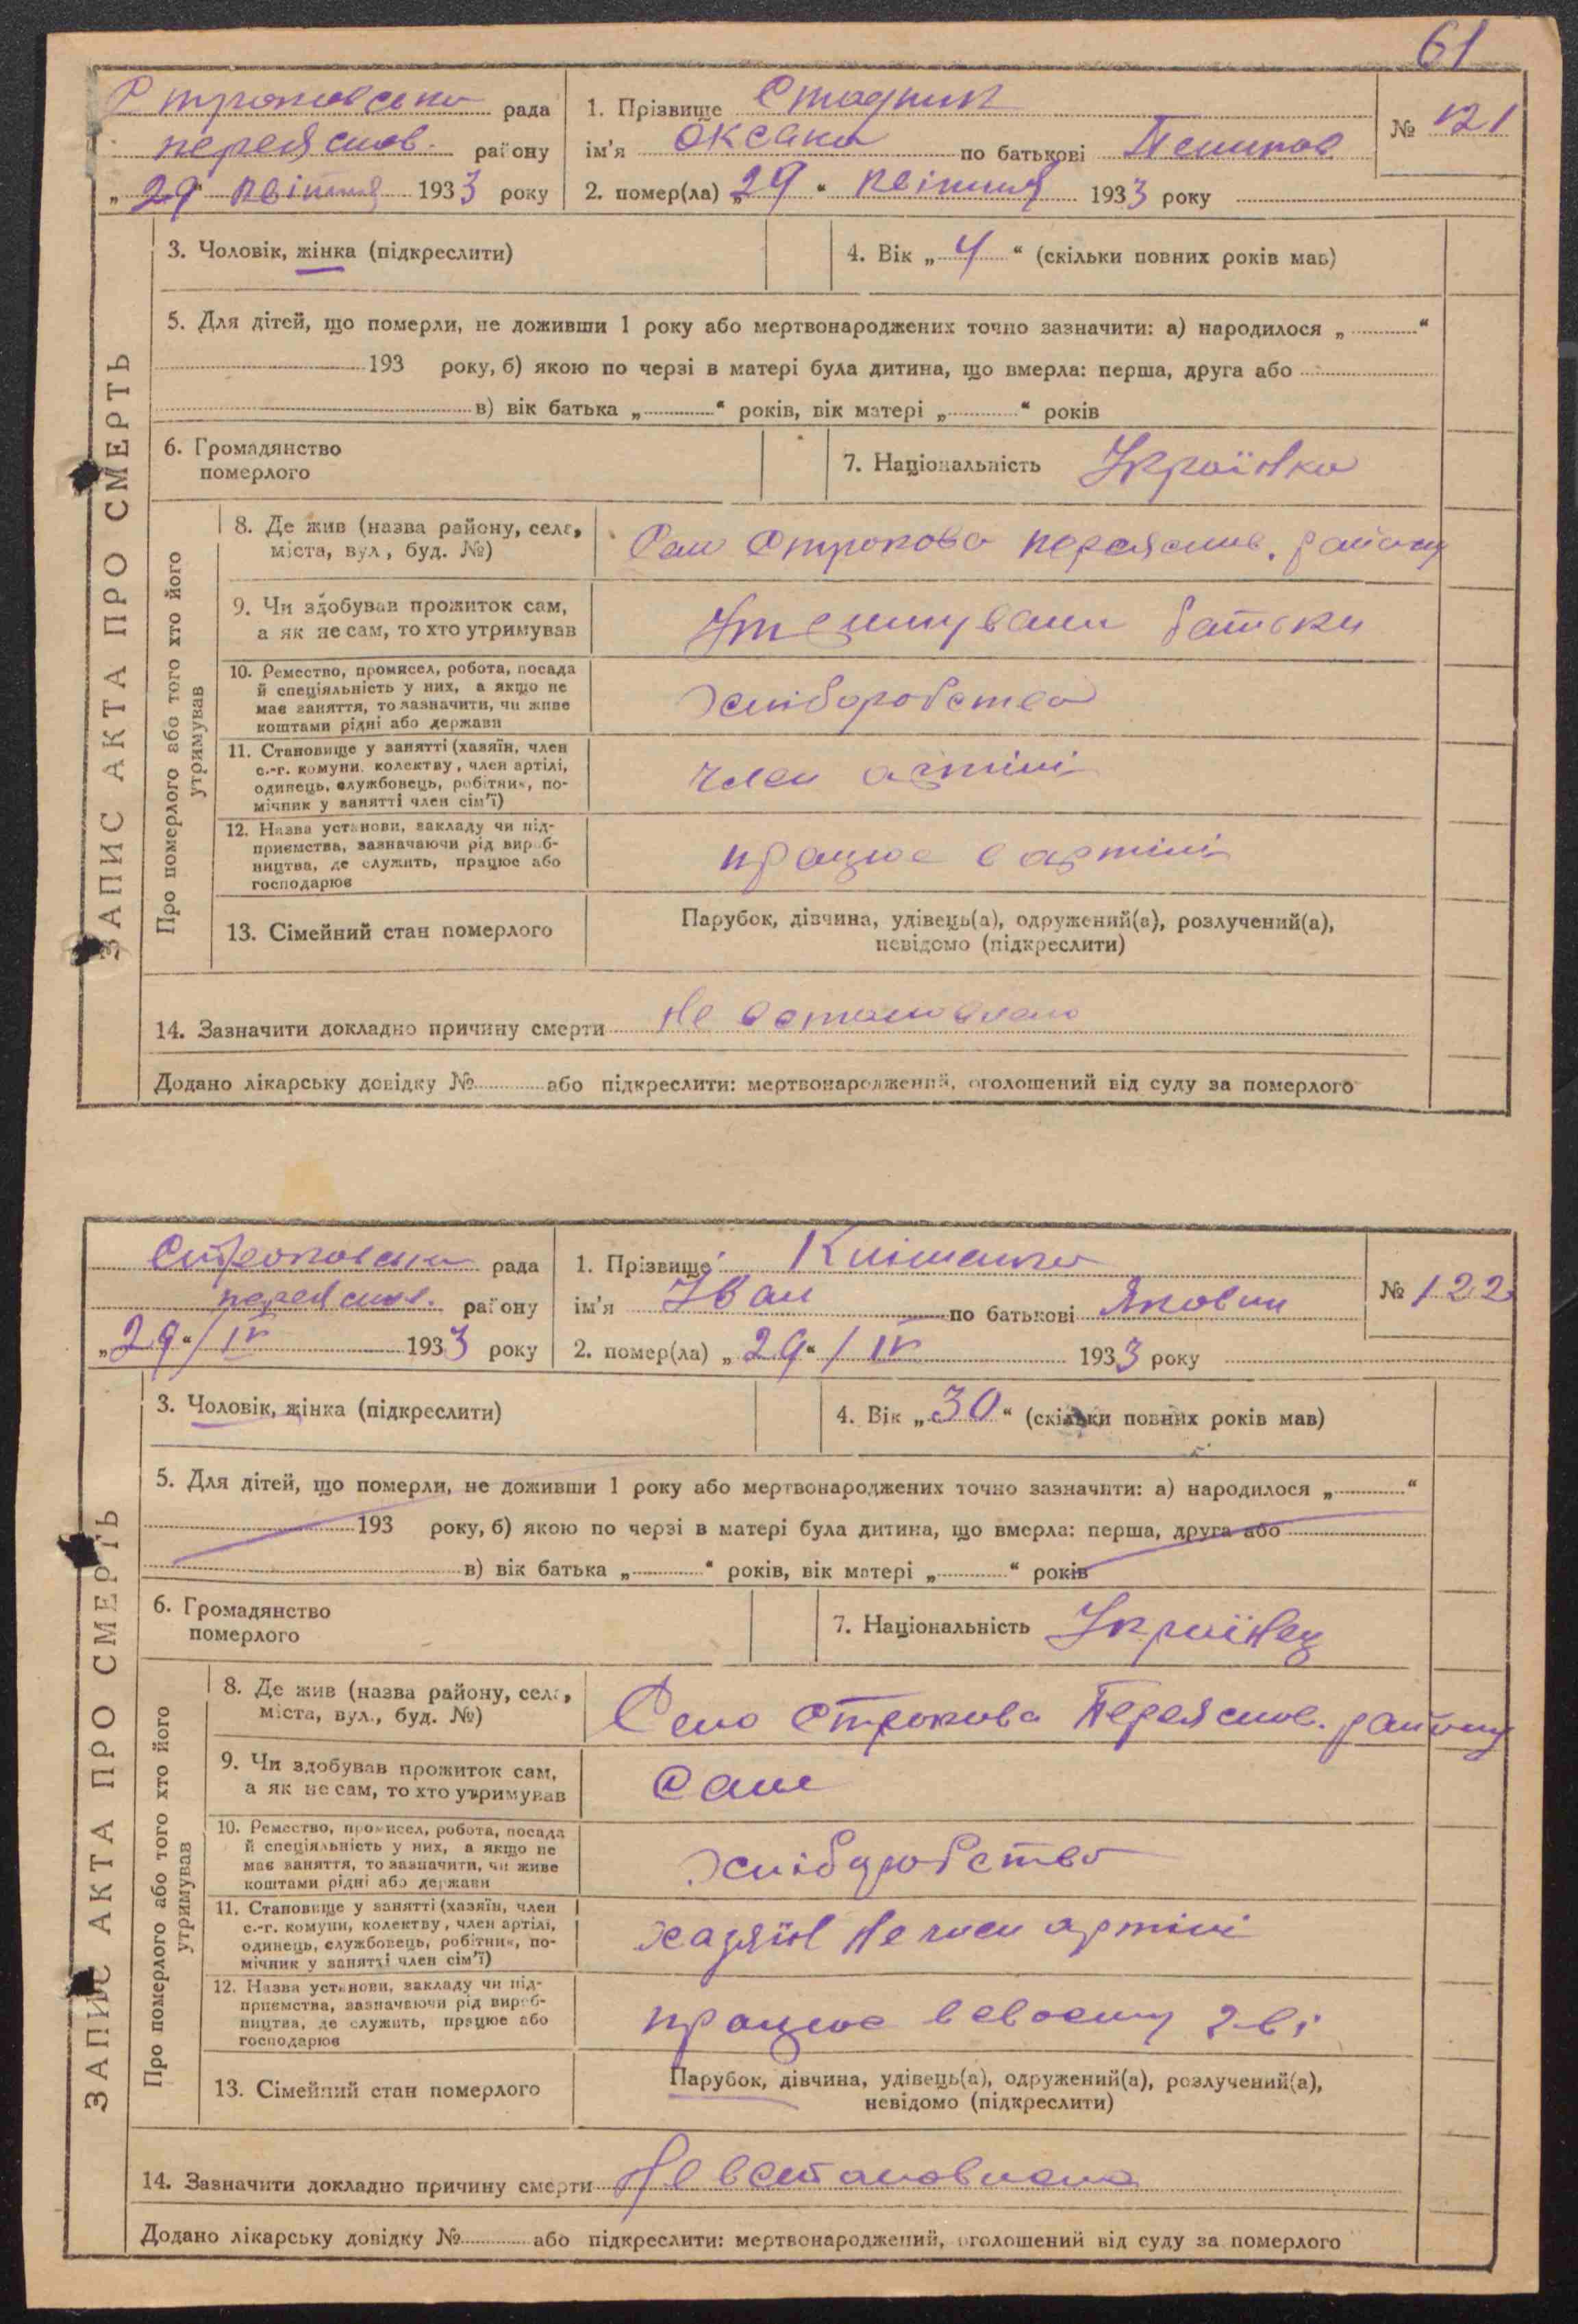 61
Строковська рада
переяслов. району
„29" квітня 1933 року
1. Прізвище Стадник
ім'я Оксана по батькові
2. помер(ла) „29" квітня 1933 року
№ 121
ЗАПИС АКТА ПРО СМЕРТЬ
3. Чоловік, жінка (підкреслити)
4. Вік „4" (скільки повних років мав)
5. Для дітей, що померли, не доживши 1 року або мертвонароджених точно зазначити: а) народилося „ "
193 року, б) якою по черзі в матері була дитина, що вмерла: перша, друга або
в) вік батька „ " років, вік матері „ " років
6. Громадянство
померлого
7. Національність Українка
Про померлого або того хто його
утримував
8. Де жив (назва району, села,
міста, вул., буд. №)
Село Строкова переяслов. району
9. Чи здобував прожиток сам,
а як не сам, то хто утримував
Утримували батьки
10. Ремество, промисел, робота, посада
й спеціяльність у них, а якщо не
має заняття, то зазначити, чи живе
коштами рідні або держави
хліборобство
11. Становище у занятті (хазяїн, член
с.-г. комуни, колектву, член артілі,
одинець, службовець, робітник, по-
мічник у занятті член сім'ї)
член артілі
12. Назва установи, закладу чи під-
приємства, зазначаючи рід вироб-
ництва, де служить, працює або
господарює
працює в артілі
13. Сімейний стан померлого
Парубок, дівчина, удівець(а), одружений(а), розлучений(а),
невідомо (підкреслити)
14. Зазначити докладно причину смерти Не встановлено
Додано лікарську довідку № або підкреслити: мертвонароджений, оголошений від суду за померлого
Строковська рада
переяслов. району
„29"/IV 1933 року
1. Прізвище Клименко
ім'я Іван по батькові Якович
2. помер(ла) „29"/IV 1933 року
№ 122
ЗАПИС АКТА ПРО СМЕРТЬ
3. Чоловік, жінка (підкреслити)
4. Вік „30" (скільки повних років мав)
5. Для дітей, що померли, не доживши 1 року або мертвонароджених точно зазначити: а) народилося „ "
193 року, б) якою по черзі в матері була дитина, що вмерла: перша, друга або
в) вік батька „ " років, вік матері „ " років
6. Громадянство
померлого
7. Національність Українец
Про померлого або того хто його
утримував
8. Де жив (назва району, села,
міста, вул., буд. №)
Село Строкова Переяслов. району
9. Чи здобував прожиток сам,
а як не сам, то хто утримував
Сам
10. Ремество, промисел, робота, посада
й спеціяльність у них, а якщо не
має заняття, то зазначити, чи живе
коштами рідні або держави
хліборобство
11. Становище у занятті (хазяїн, член
с.-г. комуни, колектву, член артілі,
одинець, службовець, робітник, по-
мічник у занятті член сім'ї)
хазяїн не член артілі
12. Назва установи, закладу чи під-
приємства, зазначаючи рід вироб-
ництва, де служить, працює або
господарює
працює в своему г-ві
13. Сімейний стан померлого
Парубок, дівчина, удівець(а), одружений(а), розлучений(а),
невідомо (підкреслити)
14. Зазначити докладно причину смерти Не встановлена
Додано лікарську довідку № або підкреслити: мертвонароджений, оголошений від суду за померлого